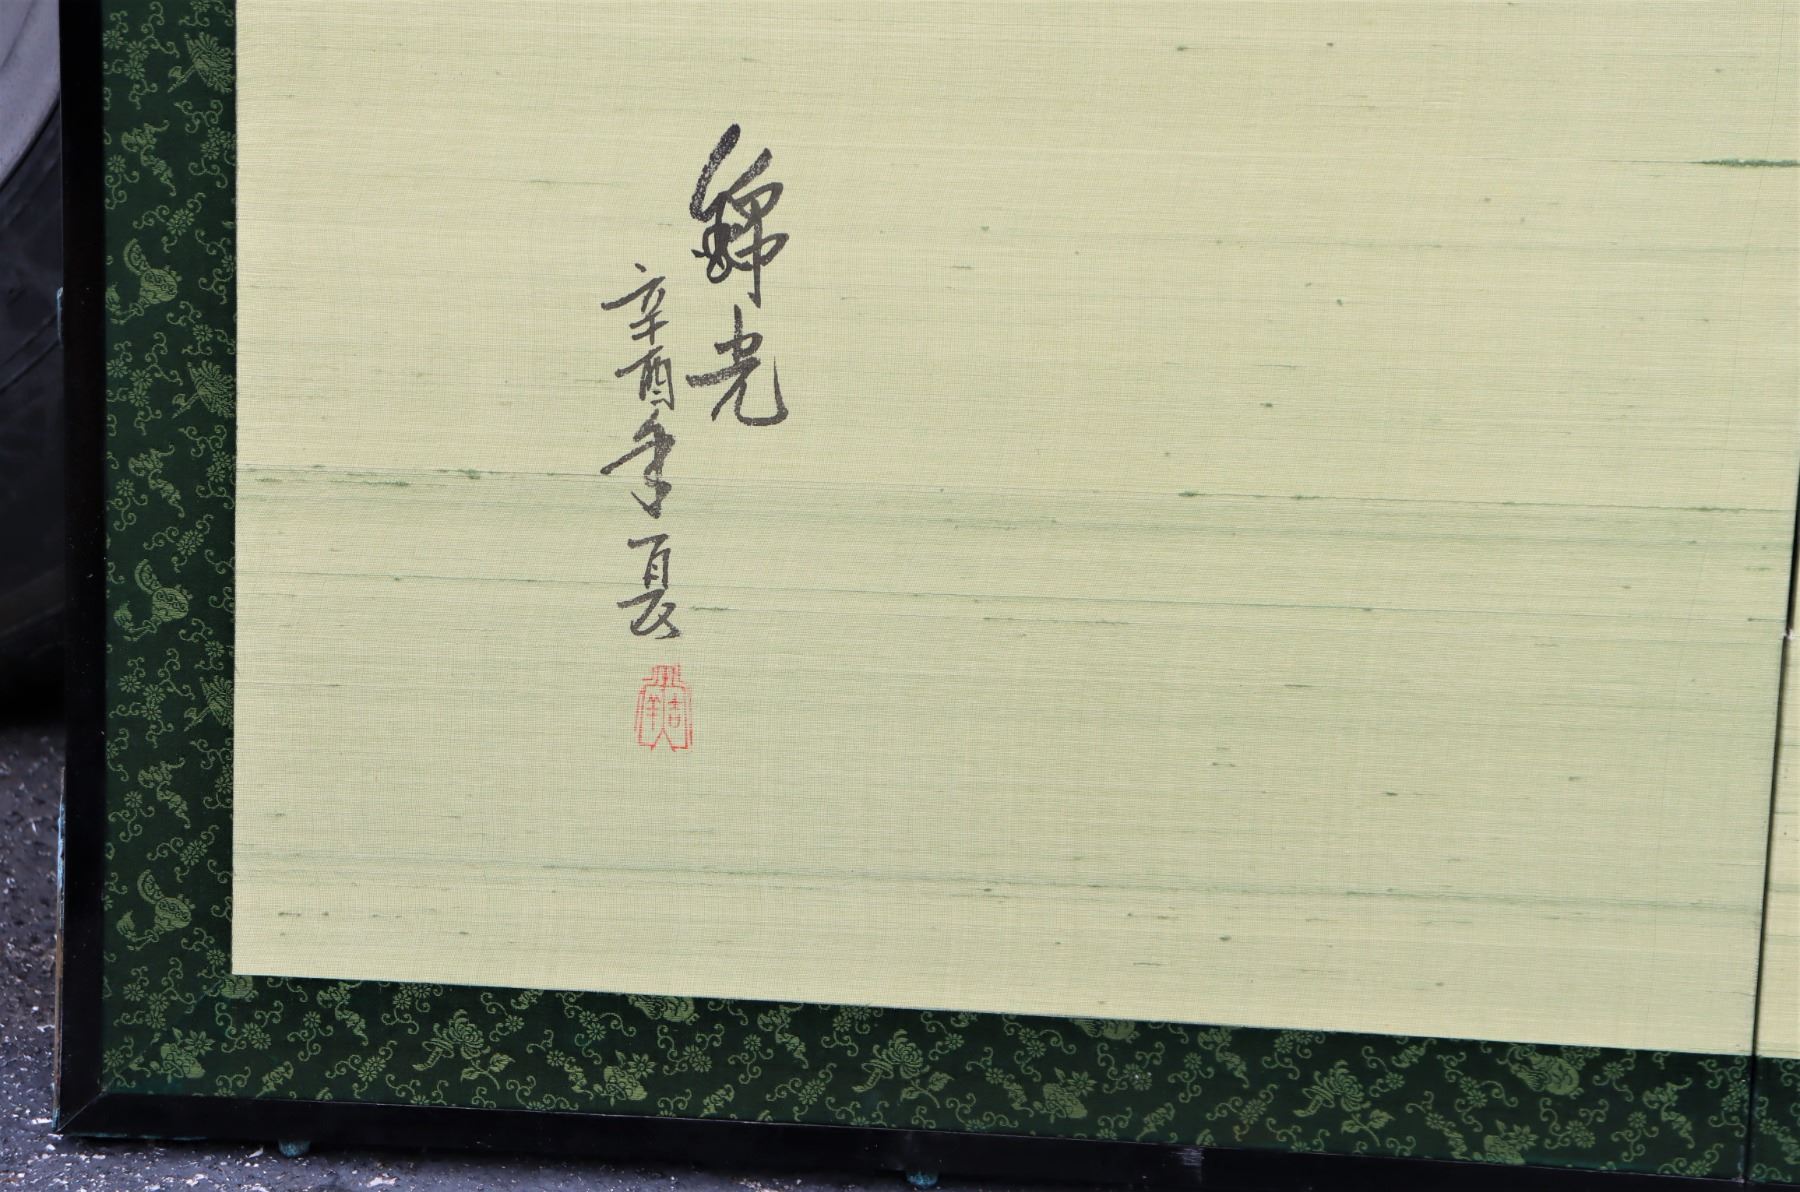 錦光
辛酉年夏